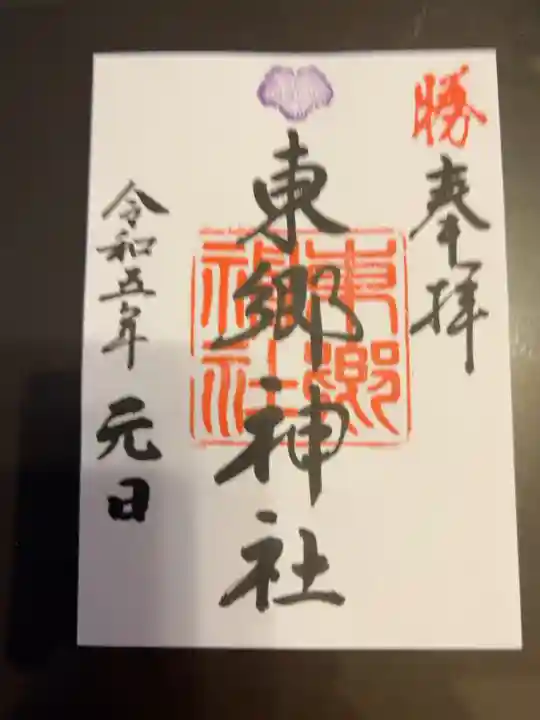 勝
奉拝
東郷神社
東郷神社
令和五年 元日